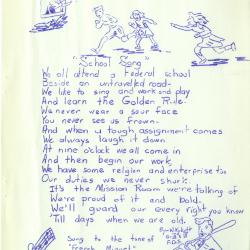 "School Song"
We all attend a Federal school
Beside an untravelled road-
We like to sing and work and play
And learn the Golden Rule.
We never wear a sour face
You never see us frown.
And when a tough assignment comes
We always laugh it down.
At nine o'clock we all come in
And then begin our work.
We have some religion and enterprise too
Our duties we never shirk.
It's the Mission Room we're talking of
We're proud of it and bold.
We'll guard our every right you know
'Till days when we are old.
Song to the tune of
"French Minuet"